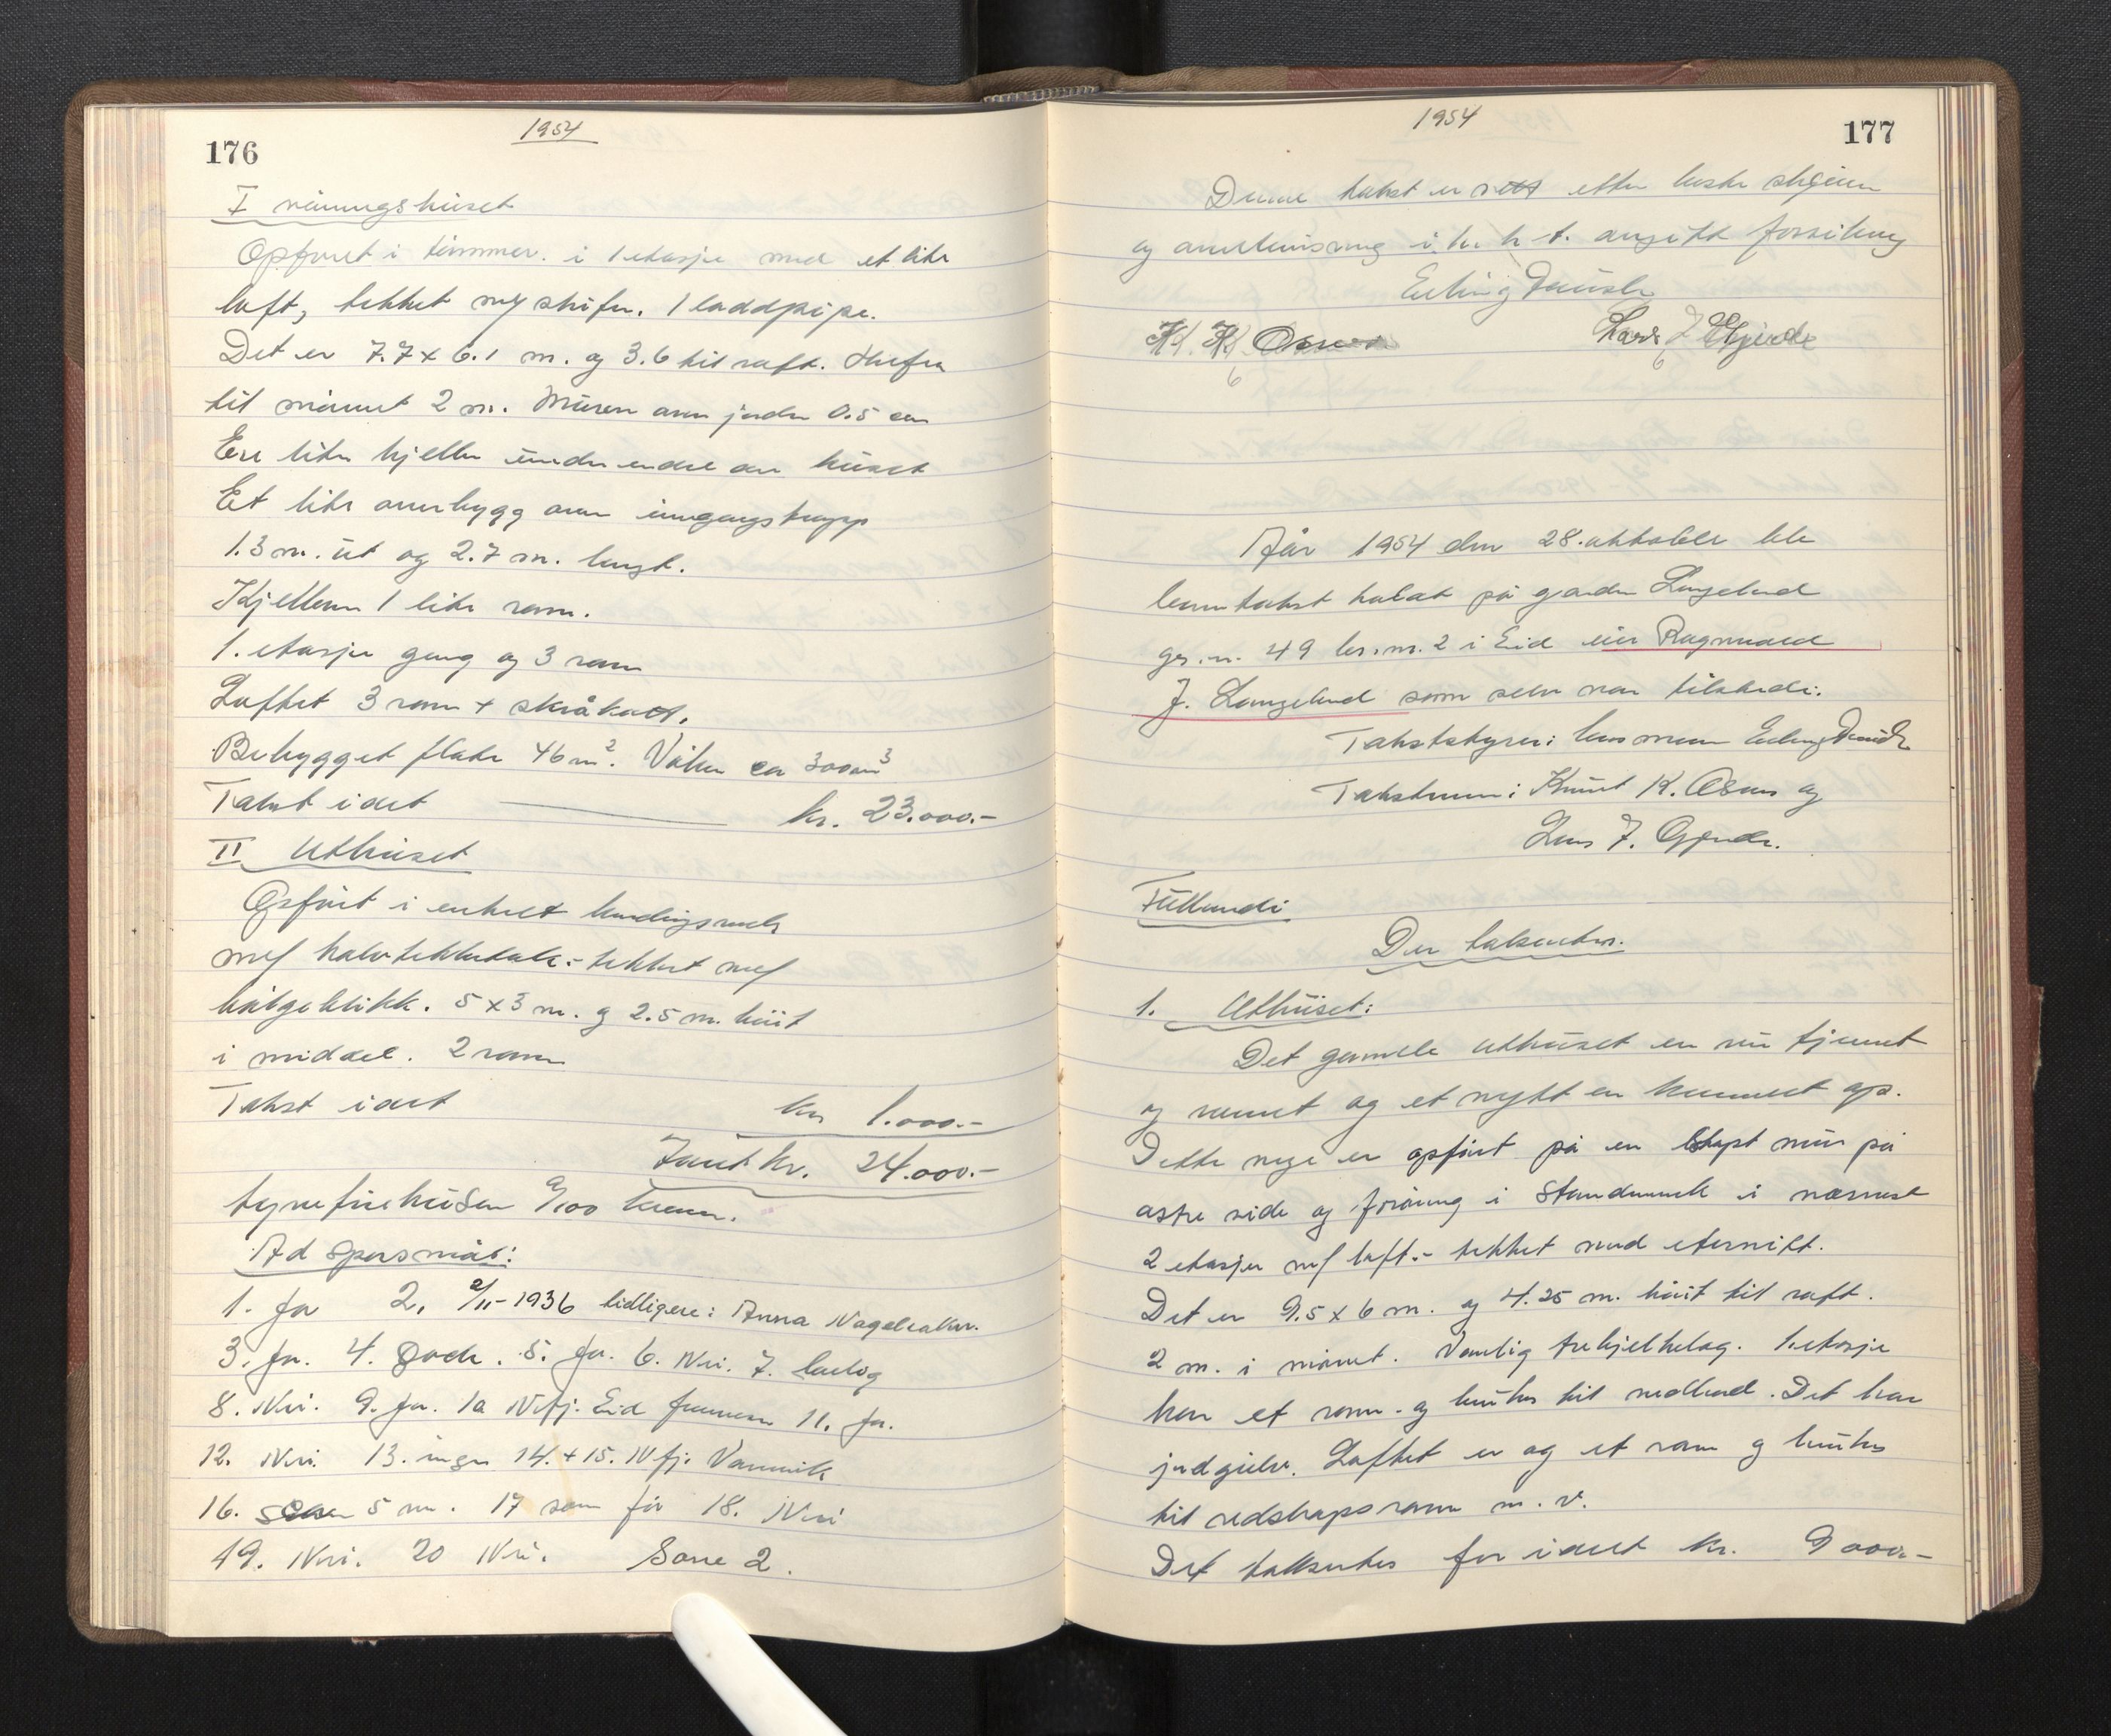 176
1954
I våningshuset
Opført i tømmer. i 1 etasje med et lite
loft, tekket m/ skifer. 1 laddpipe.
Det er 7.7 x 6.1 m. og 3.6 til raft. Herfra
til mønet 2 m. Muren over jorden 0.5 cm
En liten kjeller under endel av huset
Et lite overbygg over inngangstrapp
1.3 m. ut og 2.7 m. langt.
Kjelleren 1 lite rom.
1. etasje gang og 3 rom
Loftet 3 rom + skråkott.
Bebygget flate 46 m². Volum ca 300 m³
Takst i alt kr. 23.000.-
II Uthuset
Opført i enkelt bindingsverk
m/ halv tekkebale - tekket m/
bølgeblikk. 5 x 3 m. og 2.5 m. høit
i middel. 2 rom
Takst i alt kr 1.000.-
Tilsammen kr. 24.000.-
tyvefirehusen 0/100 kroner.
Ad spørsmål:
1. Ja 2. 2/11-1936 tidligere: Anna Nagelsaker.
3. Ja. 4. Gode. 5. Ja. 6. Nei. 7. Laelog
8. Nei. 9. Ja. 10 N.fj. Eid 11. Ja.
12. Nei. 13. ingen 14. + 15. N.fj. Vannvik
16. 5 m. 17 som før 18. Nei
19. Nei. 20 Nei. Sone 2.
1954
177
Denne takst er rett etter beste skjønn
og overbevisning i h. h. t. avgitt forsikring
Erling Dausle
K. K. Osnes Lars J. Gjerde
År 1954 den 28. oktober ble
branntakst holdt på garden Langeland
gr. nr. 49 br. nr. 2 i Eid eier Ragnvald
J. Langeland som selv var tilstede.
Takststyrer: lensmann Erling Dausle
Takstmenn: Knut K. Osnes og
Lars J. Gjerde.
Fullmedi
Der takseretes.
1. Uthuset:
Det gamle uthuset er nu fjernet
og revet og et nytt er kommet op.
Dette nye er opført på en støpt mur på
østre side og forøvrig i standverk i nærmest
2 etasjer m/ loft - tekket med eternitt.
Det er 9.5 x 6 m. og 4.25 m. høit til raft.
2 m. i mønet. Vanlig trebjelkelag. 1. etasje
har et rom - og brukes til vedbod. Det har
jordgulv. Loftet er og et rom og brukes
til redskapsrom m. v.
Det takseres for i alt kr. 9 000.-